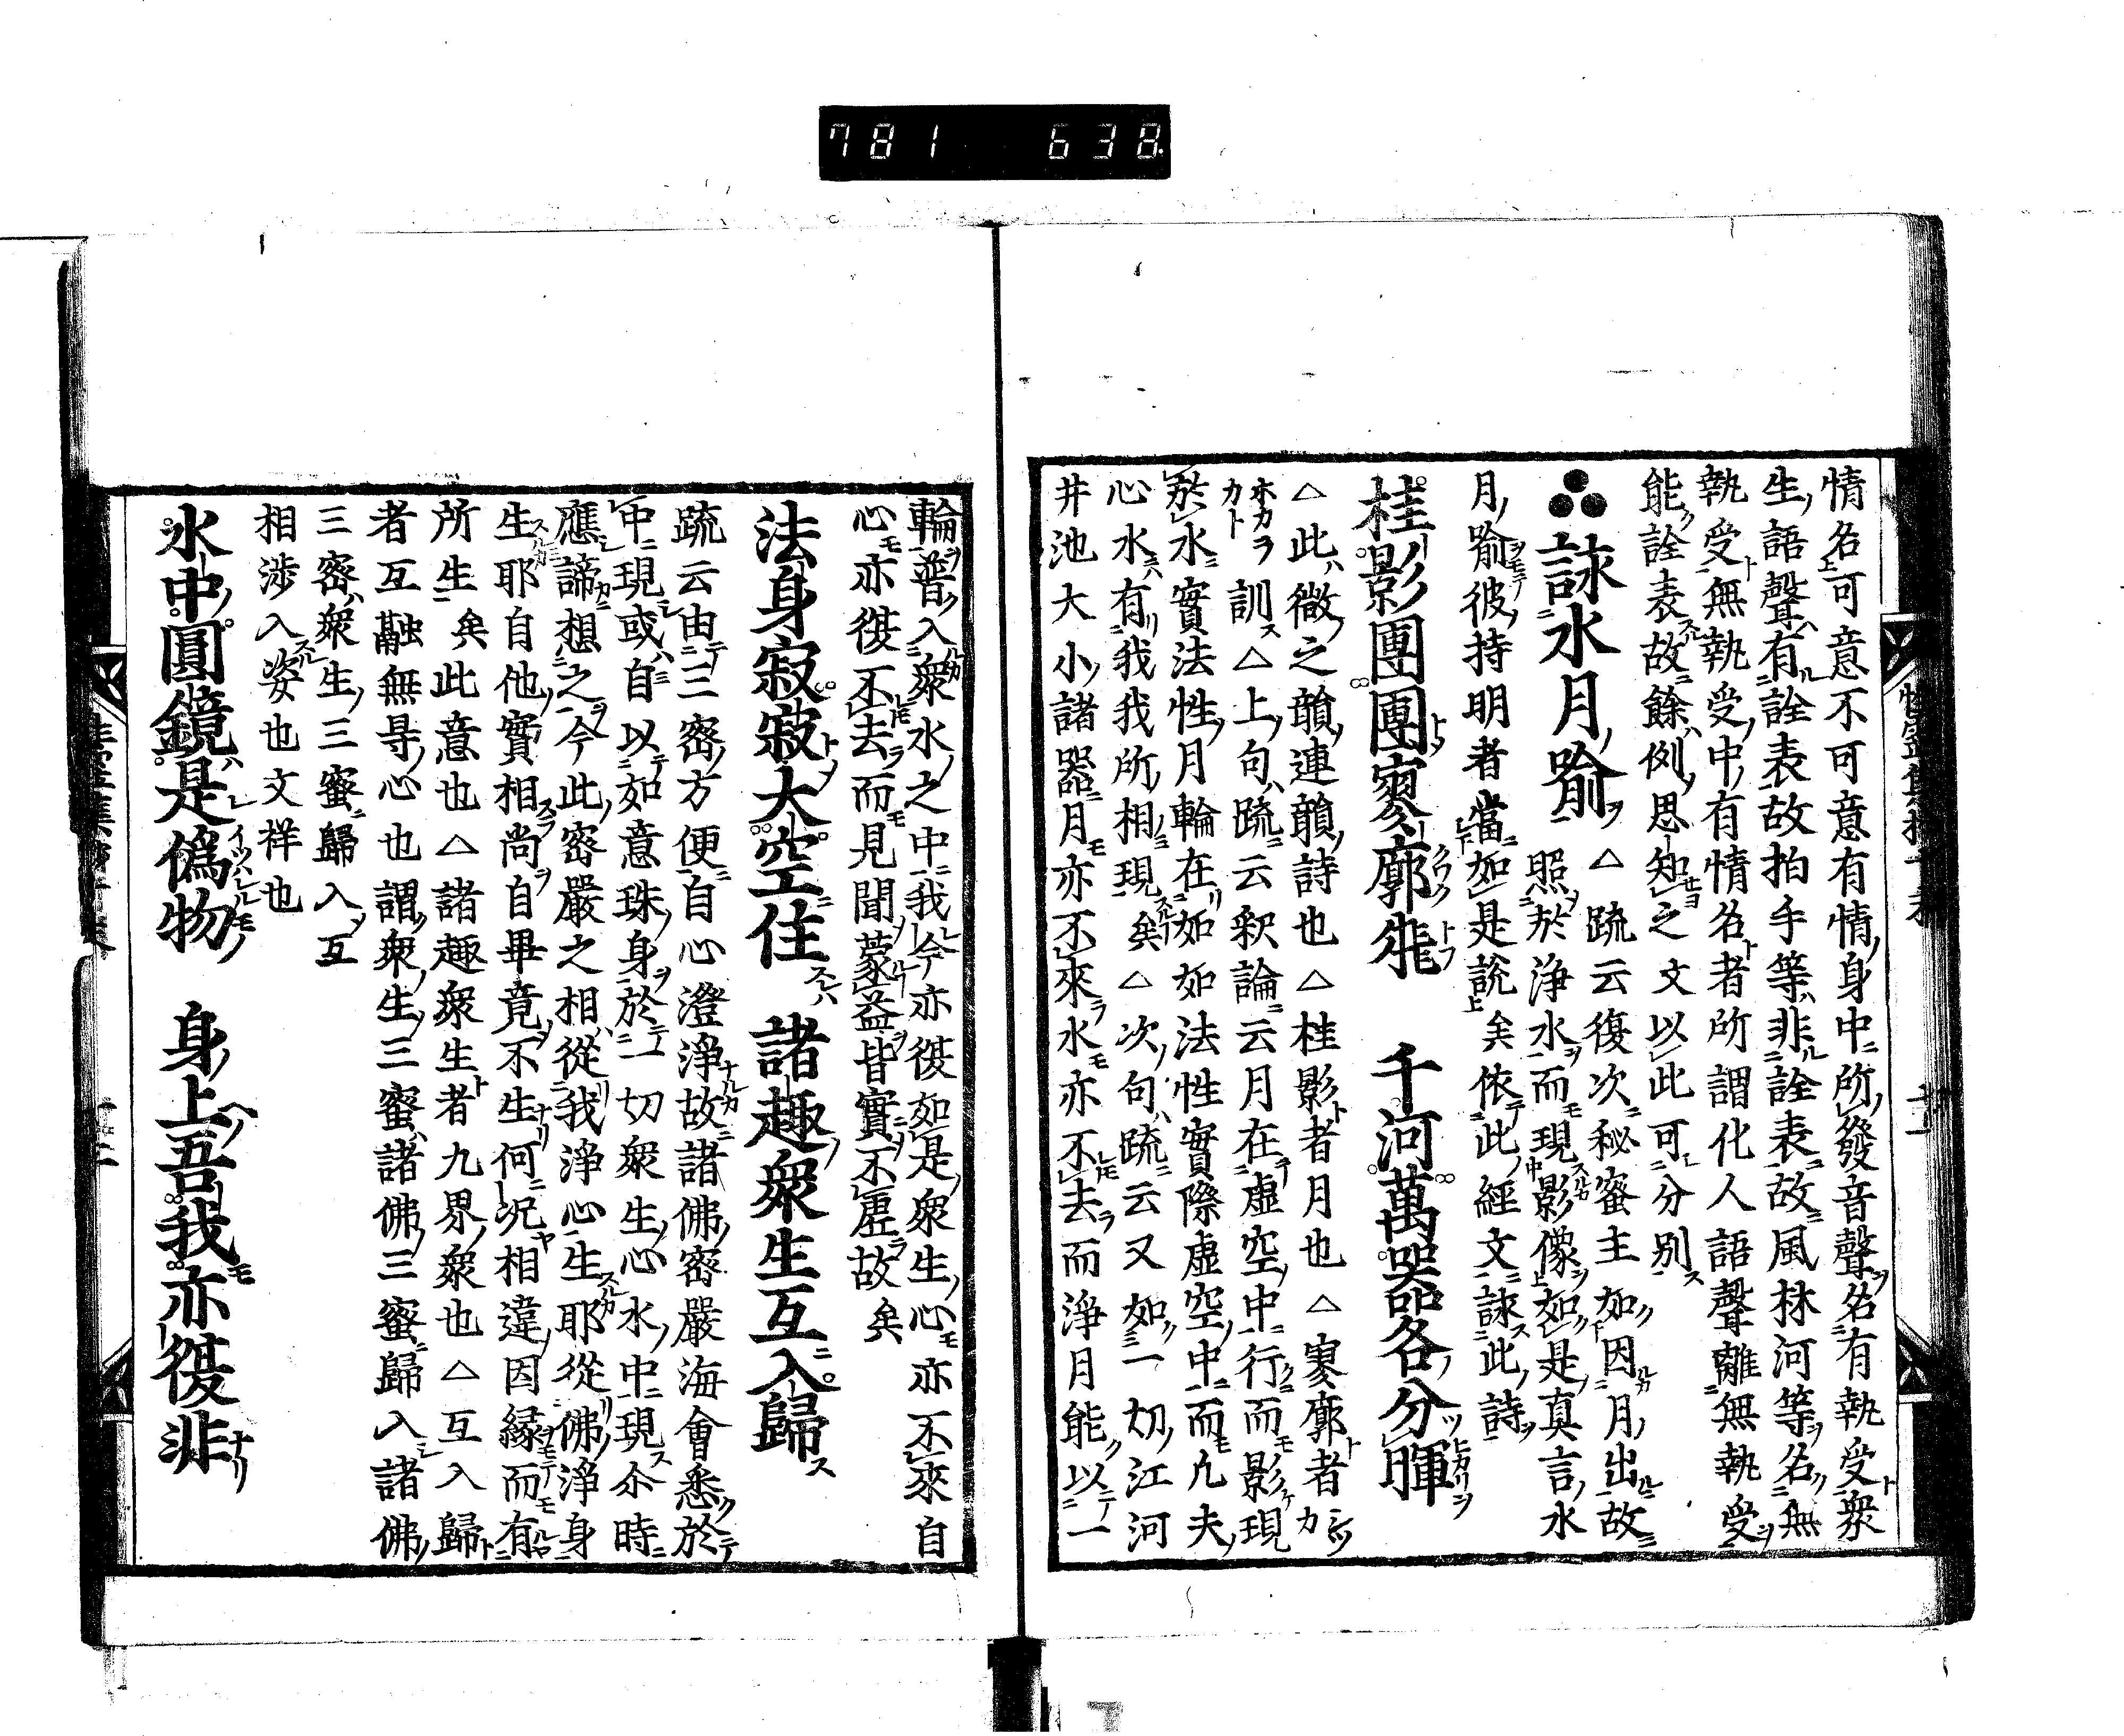 781 638
情名可意不可意有情身中所發音聲名有執受衆
生語聲有詮表故拍手等非詮表故風林河等名無
執受無執受中有情名者所謂化人語聲離無執受
能詮表故餘例思知之文以此可分別
詠水月喩 △疏云復次秘蜜主如因月出故
照於淨水而現影像如是真言水
月喩彼持明者當如是説矣依此經文詠此詩
桂影團團寥廓飛 千河萬器各分暉
△此微之韻連韻詩也△桂影者月也△寥廓者カ
ホカヲカト訓△上句疏云釈論云月在虚空中行而影現
於水實法性月輪在如如法性實際虚空中而凡夫
心水有我我所相現矣△次句疏云又如一切江河
井池大小諸器月亦不來水亦不去而淨月能以一
輪普入衆水之中我今亦復如是衆生心亦不來自
心亦復不去而見聞蒙益皆實不虛故矣
法身寂寂大空住 諸趣衆生互入歸
疏云由三密方便自心澄淨故諸佛密嚴海會悉於
中現或自以如意珠身於一切衆生心水中現尒時
應諦想之今此密嚴之相從我淨心生耶從佛淨身
生耶自他實相尚自畢竟不生何况相違因縁而有
所生矣此意也△諸趣衆生者九界衆也△互入歸
者互融無㝵心也謂衆生三蜜諸佛三蜜歸入諸佛
三密衆生三蜜歸入互
相渉入姿也文祥也
水中圓鏡是僞物 身上吾我亦復非